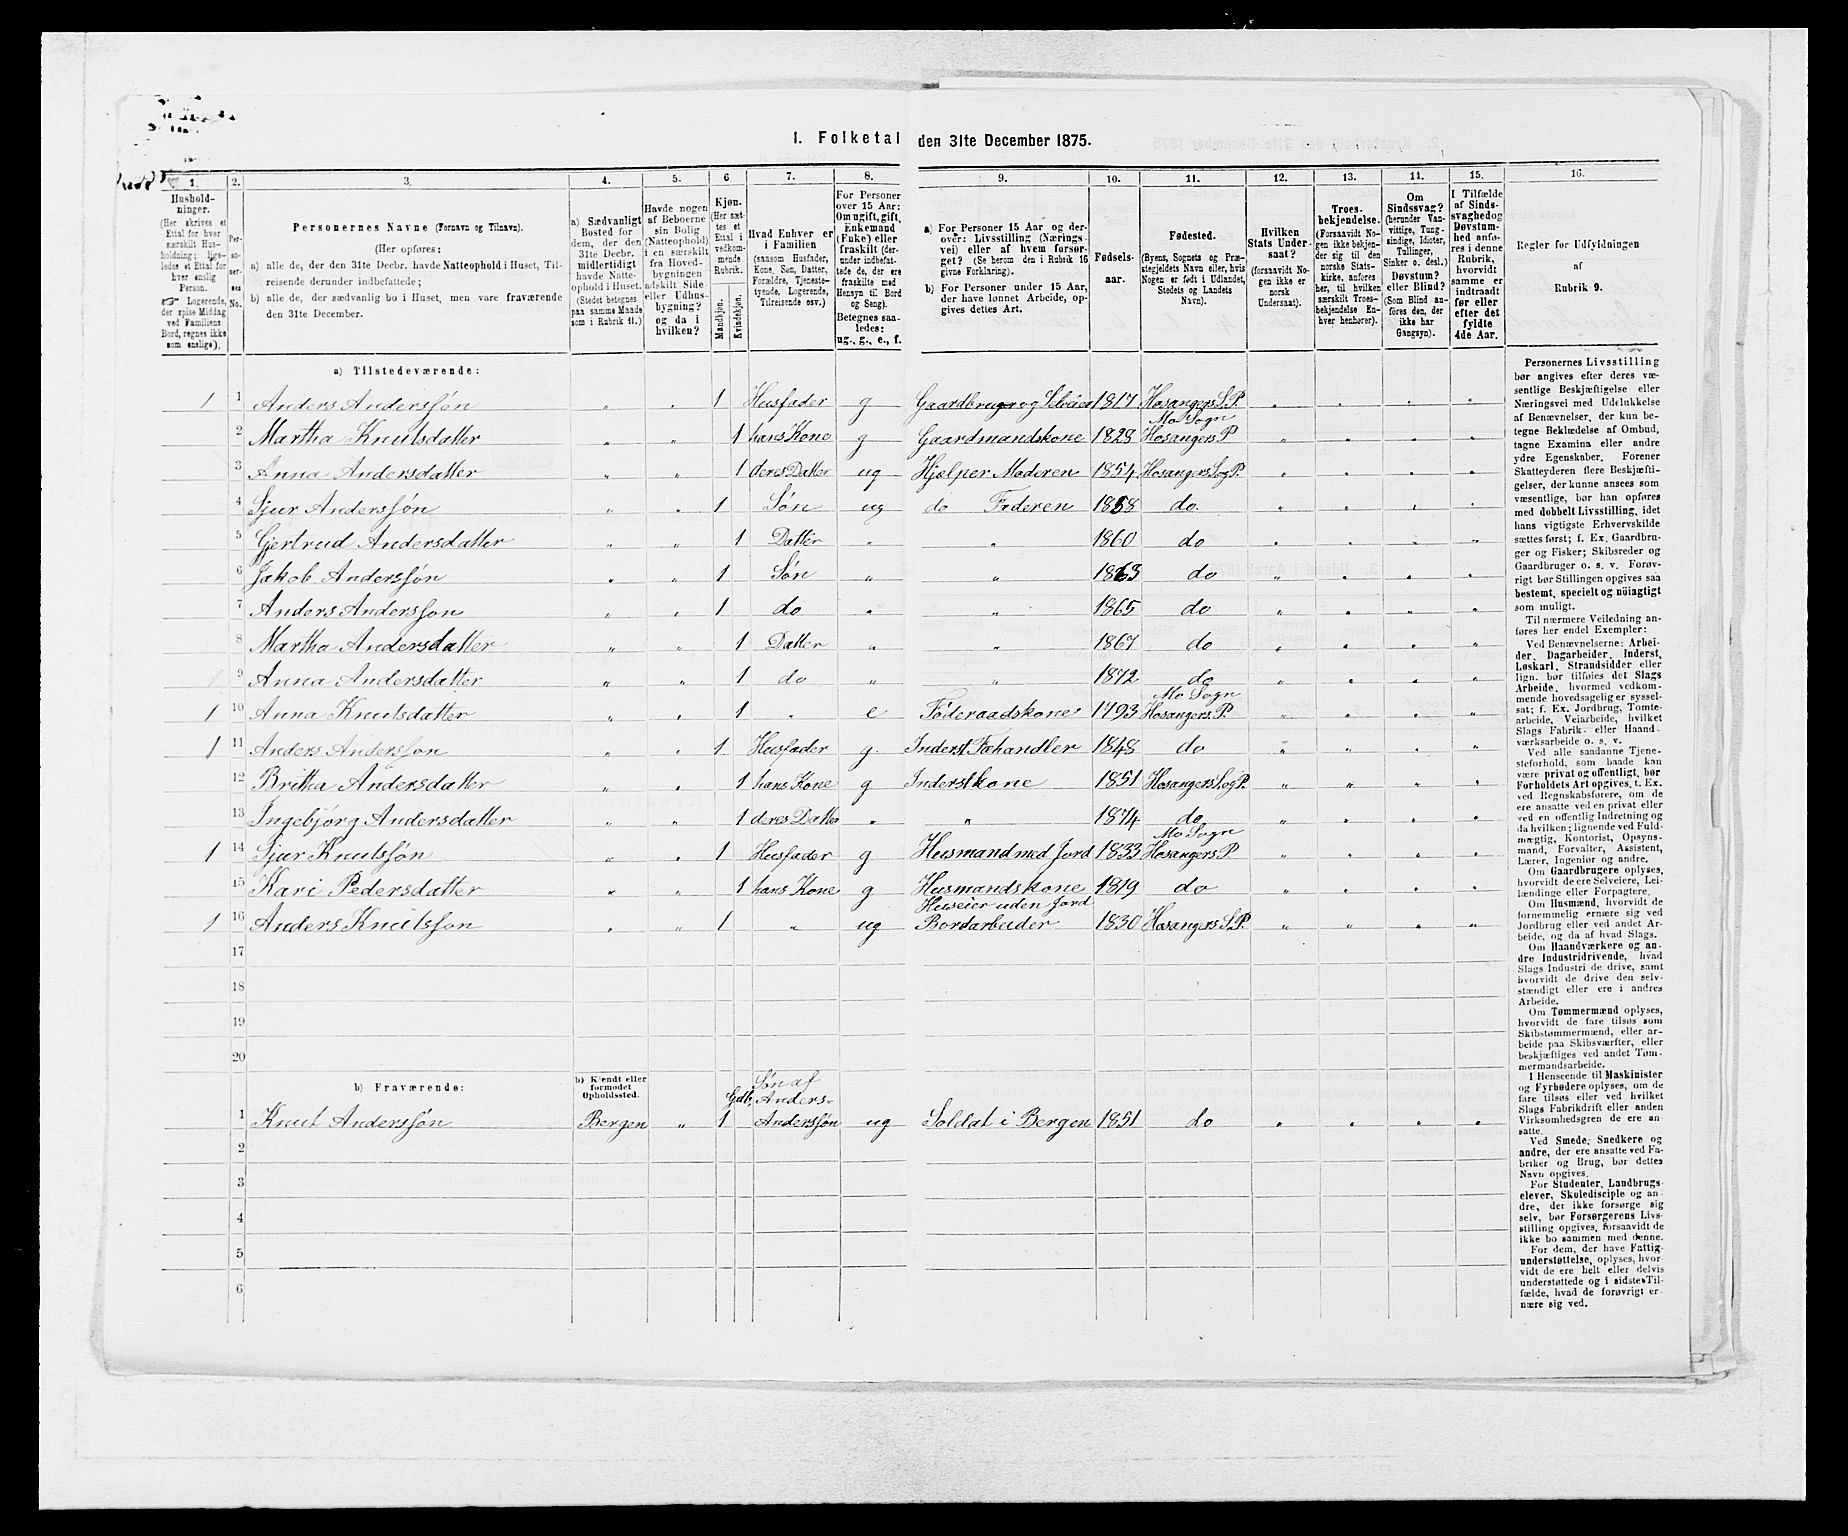 1. Folketal den 31te December 1875.
1. 2. 3. 4. 5. 6 7. 8. 9. 10. 11. 12. 13. 14. 15. 16.
Hushold-
ninger.
(Her skrives et
Ettal for hver
særskilt Hus-
holdning; lige-
ledes et Ettal for
hver enslig
Person.
☞ Logerende,
der spise Middag
ved Familiens
Bord, regnes ikke
som enslige).
Per-
so-
ner-
nes
No.
Personernes Navne (Fornavn og Tilnavn).
(Her opføres:
a) alle de, der den 31te Decbr. havde Natteophold i Huset, Til-
reisende derunder indbefattede;
b) alle de, der sædvanlig bo i Huset, men vare fraværende
den 31te December.
a) Sædvanligt
Bosted for
dem, der den
31te Decbr.
midlertidigt
havde Natte-
ophold i Huset.
(Stedet betegnes
paa samme Maade
som i Rubrik 11.)
Havde nogen
af Beboerne
sin Bolig
(Natteophold)
i en særskilt
fra Hoved-
bygningen
adskilt Side-
eller Udhus-
bygning?
og da i
hvilken?
Kjøn.
(Her sæt-
tes et
Ettal i
vedkom-
mende
Rubrik.
Mandkjøn.
Kvindekjøn.
Hvad Enhver er
i Familien
(saasom Husfader,
Kone, Søn, Datter,
Forældre, Tjeneste-
tyende, Logerende,
Tilreisende osv.)
For Personer
over 15 Aar:
Om ugift, gift,
Enkemand
(Enke) eller
fraskilt (der-
under indbefat-
tede de, der ere
fraskilte med
Hensyn til Bord
og Seng).
Betegnes saa-
ledes:
ug., g., e., f.
a) For Personer 15 Aar og der-
over: Livsstilling (Nærings-
vei) eller af hvem forsør-
get? (Se herom den i Rubrik 16
givne Forklaring).
b) For Personer under 15 Aar,
der have lønnet Arbeide, op-
gives dettes Art.
Fødsels-
aar.
Fødested.
(Byens, Sognets og Præ-
stegjeldets Navn eller, hvis
Nogen er født i Udlandet,
Stedets og Landets
Navn).
Hvilken
Stats Under-
saat?
(forsaavidt No-
gen ikke er
norsk
Undersaat).
Troes-
bekjendelse.
(Forsaavidt No-
gen ikke bekjen-
der sig til den
norske Stats-
kirke, anføres
her, til hvilken
særskilt Troes-
bekjendelse En-
hver henhører).
Om
Sindssvag?
(herunder Van-
vittige, Tung-
sindige, Idioter,
Tullinger,
Sinker o. desl.)
Døvstum?
eller Blind?
(Som Blind an-
føres den, der
ikke har
Gangsyn).
I Tilfælde
af Sinds-
svaghed og
Døvstum-
hed anfø-
res i denne
Rubrik,
hvorvidt
samme er
indtraadt
før eller
efter det
fyldte
4de Aar.
Regler før Udfyldningen
af
Rubrik 9.
a) Tilstedeværende:
1 1 Anders Andersøn " " 1 Husfader g Gaardbruger og Selveier 1817 Hosangers S. P.
Mo Sogn
2 Martha Knutsdatter " " 1 hans Kone g Gaardmandskone 1828 Hosangers P
3 Anna Andersdatter " " 1 deres Datter ug Hjælper Moderen 1854 Hosangers S og P.
4 Sjur Andersøn " " 1 Søn ug do Faderen 1858 do.
5 Gjertrud Andersdatter " " 1 Datter " " 1860 do
6 Jakob Andersøn " " 1 Søn " " 1863 do
7 Anders Andersson " " 1 do " " 1865 do
8 Martha Andersdatter " " 1 Datter " " 1867 do
9 Anna Andersdatter " " 1 do " " 1872 do
Mo Sogn
1 10 Anna Knutsdatter " " 1 " e Føderaadskone 1793 Hosangers P.
1 11 Anders Andersson " " 1 Husfader g. Inderst Fæhandler 1848 do
12 Britha Andersdatter " " 1 hans Kone g Inderstkone 1851 Hosangers S og P.
13 Ingebjørg Andersdatter " " 1 deres Datter " " 1874 do
Mo Sogn
1 14 Sjur Knutsøn " " 1 Husfader g Husmand med Jord 1833 Hosangers P.
15 Kari Pedersdatter " " 1 hans Kone g Husmandskone 1819 do
Huseier uden Jord
1 16 Anders Knutsson " " 1 " ug Bordarbeider 1830 Hosangers S. P.
17
18
19
20
b) Fraværende:
b) Kjendt eller
formodet
Opholdssted.
Søn af
Gdbr. Anders
1 Knut Andersøn Bergen " 1 Andersøn ug Soldat i Bergen 1851 do
2
3
4
5
6
Personernes Livsstilling
bør angives efter deres væ-
sentlige Beskjæftigelse eller
Næringsvei med Udelukkelse
af Benævnelser, der kun be-
tegne Beklædelse af Ombud,
tagne Examina eller andre
ydre Egenskaber. Forener
Skatteyderen flere Beskjæfti-
gelser, der kunne ansees som
væsentlige, bør han opføres
med dobbelt Livsstilling, idet
hans vigtigste Erhvervskilde
sættes først; f. Ex. Gaardbru-
ger og Fisker; Skibsreder og
Gaardbruger o. s. v. Forøv-
rigt bør Stillingen opgives saa
bestemt, specielt og nøiagtigt
som muligt.
Til nærmere Veiledning an-
føres her endel Exempler:
Ved Benævnelserne: Arbei-
der, Dagarbeider, Inderst,
Løskarl, Strandsidder eller
lign. bør tilføies det Slags
Arbeide, hvormed vedkom-
mende hovedsagelig er syssel-
sat; f. Ex. Jordbrug, Tomte-
arbeide, Veiarbeide, hvilket
Slags Fabrik- eller Haand-
værksarbeide o. s. v.
Ved alle saadanne Tjene-
steforhold, som baade kan
være privat og offentligt, bør
Forholdets Art opgives, t. Ex.
ved Regnskabsførere, om de
ere ansatte ved en privat eller
ved en offentlig Indretning og
da hvilken; lignende ved Fuld-
mægtig, Kontorist, Opsyns-
mand, Forvalter, Assistent,
Lærer, Ingeniør og andre.
Om Gaardbrugere oplyses,
hvorvidt de ere Selveiere, Lei-
lændinge eller Forpagtere.
Om Husmænd, hvorvidt de
fornemmelig ernære sig ved
Jordbrug eller ved andet Ar-
beide, og da af hvad Slags.
Om Haandværkere og an-
dre Industridrivende, hvad
Slags Industri de drive, samt
hvorvidt de drive den selv-
stændigt eller ere i andres
Arbeide.
Om Tømmermænd oplyses,
hvorvidt de fare tilsøs som
Skibstømmermænd, eller ar-
beide paa Skibsværfter, eller
beskjæftiges ved andet Tøm-
mermandsarbeide.
I Henseende til Maskinister
og Fyrbødere oplyses, om de
fare tilsøs eller ved hvilket
Slags Fabrikdrift eller anden
Virksomhedsgren de ere an-
satte.
Ved Smede, Snedkere og
andre, der ere ansatte ved Fa-
briker og Brug, bør dettes
Navn opgives.
For Studenter, Landbrugs-
elever, Skoledisciple og an-
dre, der ikke forsørge sig
selv, bør Forsørgerens Livs-
stilling opgives, forsaavidt de
ikke bo sammen med denne.
For dem, der have Fattig-
understøttelse, oplyses, hvor-
vidt de ere helt eller delvis
understøttede og i sidste Til-
fælde, hvad de forøvrigt er-
nære sig ved.